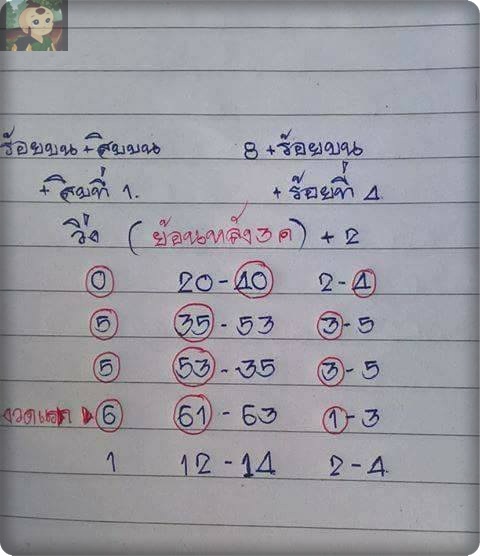 ร้อยบน + สิบบน 8 + ร้อยบน
+ สิบที่ 1. + ร้อยที่ 4
วิ่ง (ย้อนหลัง 3 ค) + 2
0 20 - 40 2 - 4
5 35 - 53 3 - 5
5 53 - 35 3 - 5
6 61 - 63 1 - 3
1 12 - 14 2 - 4